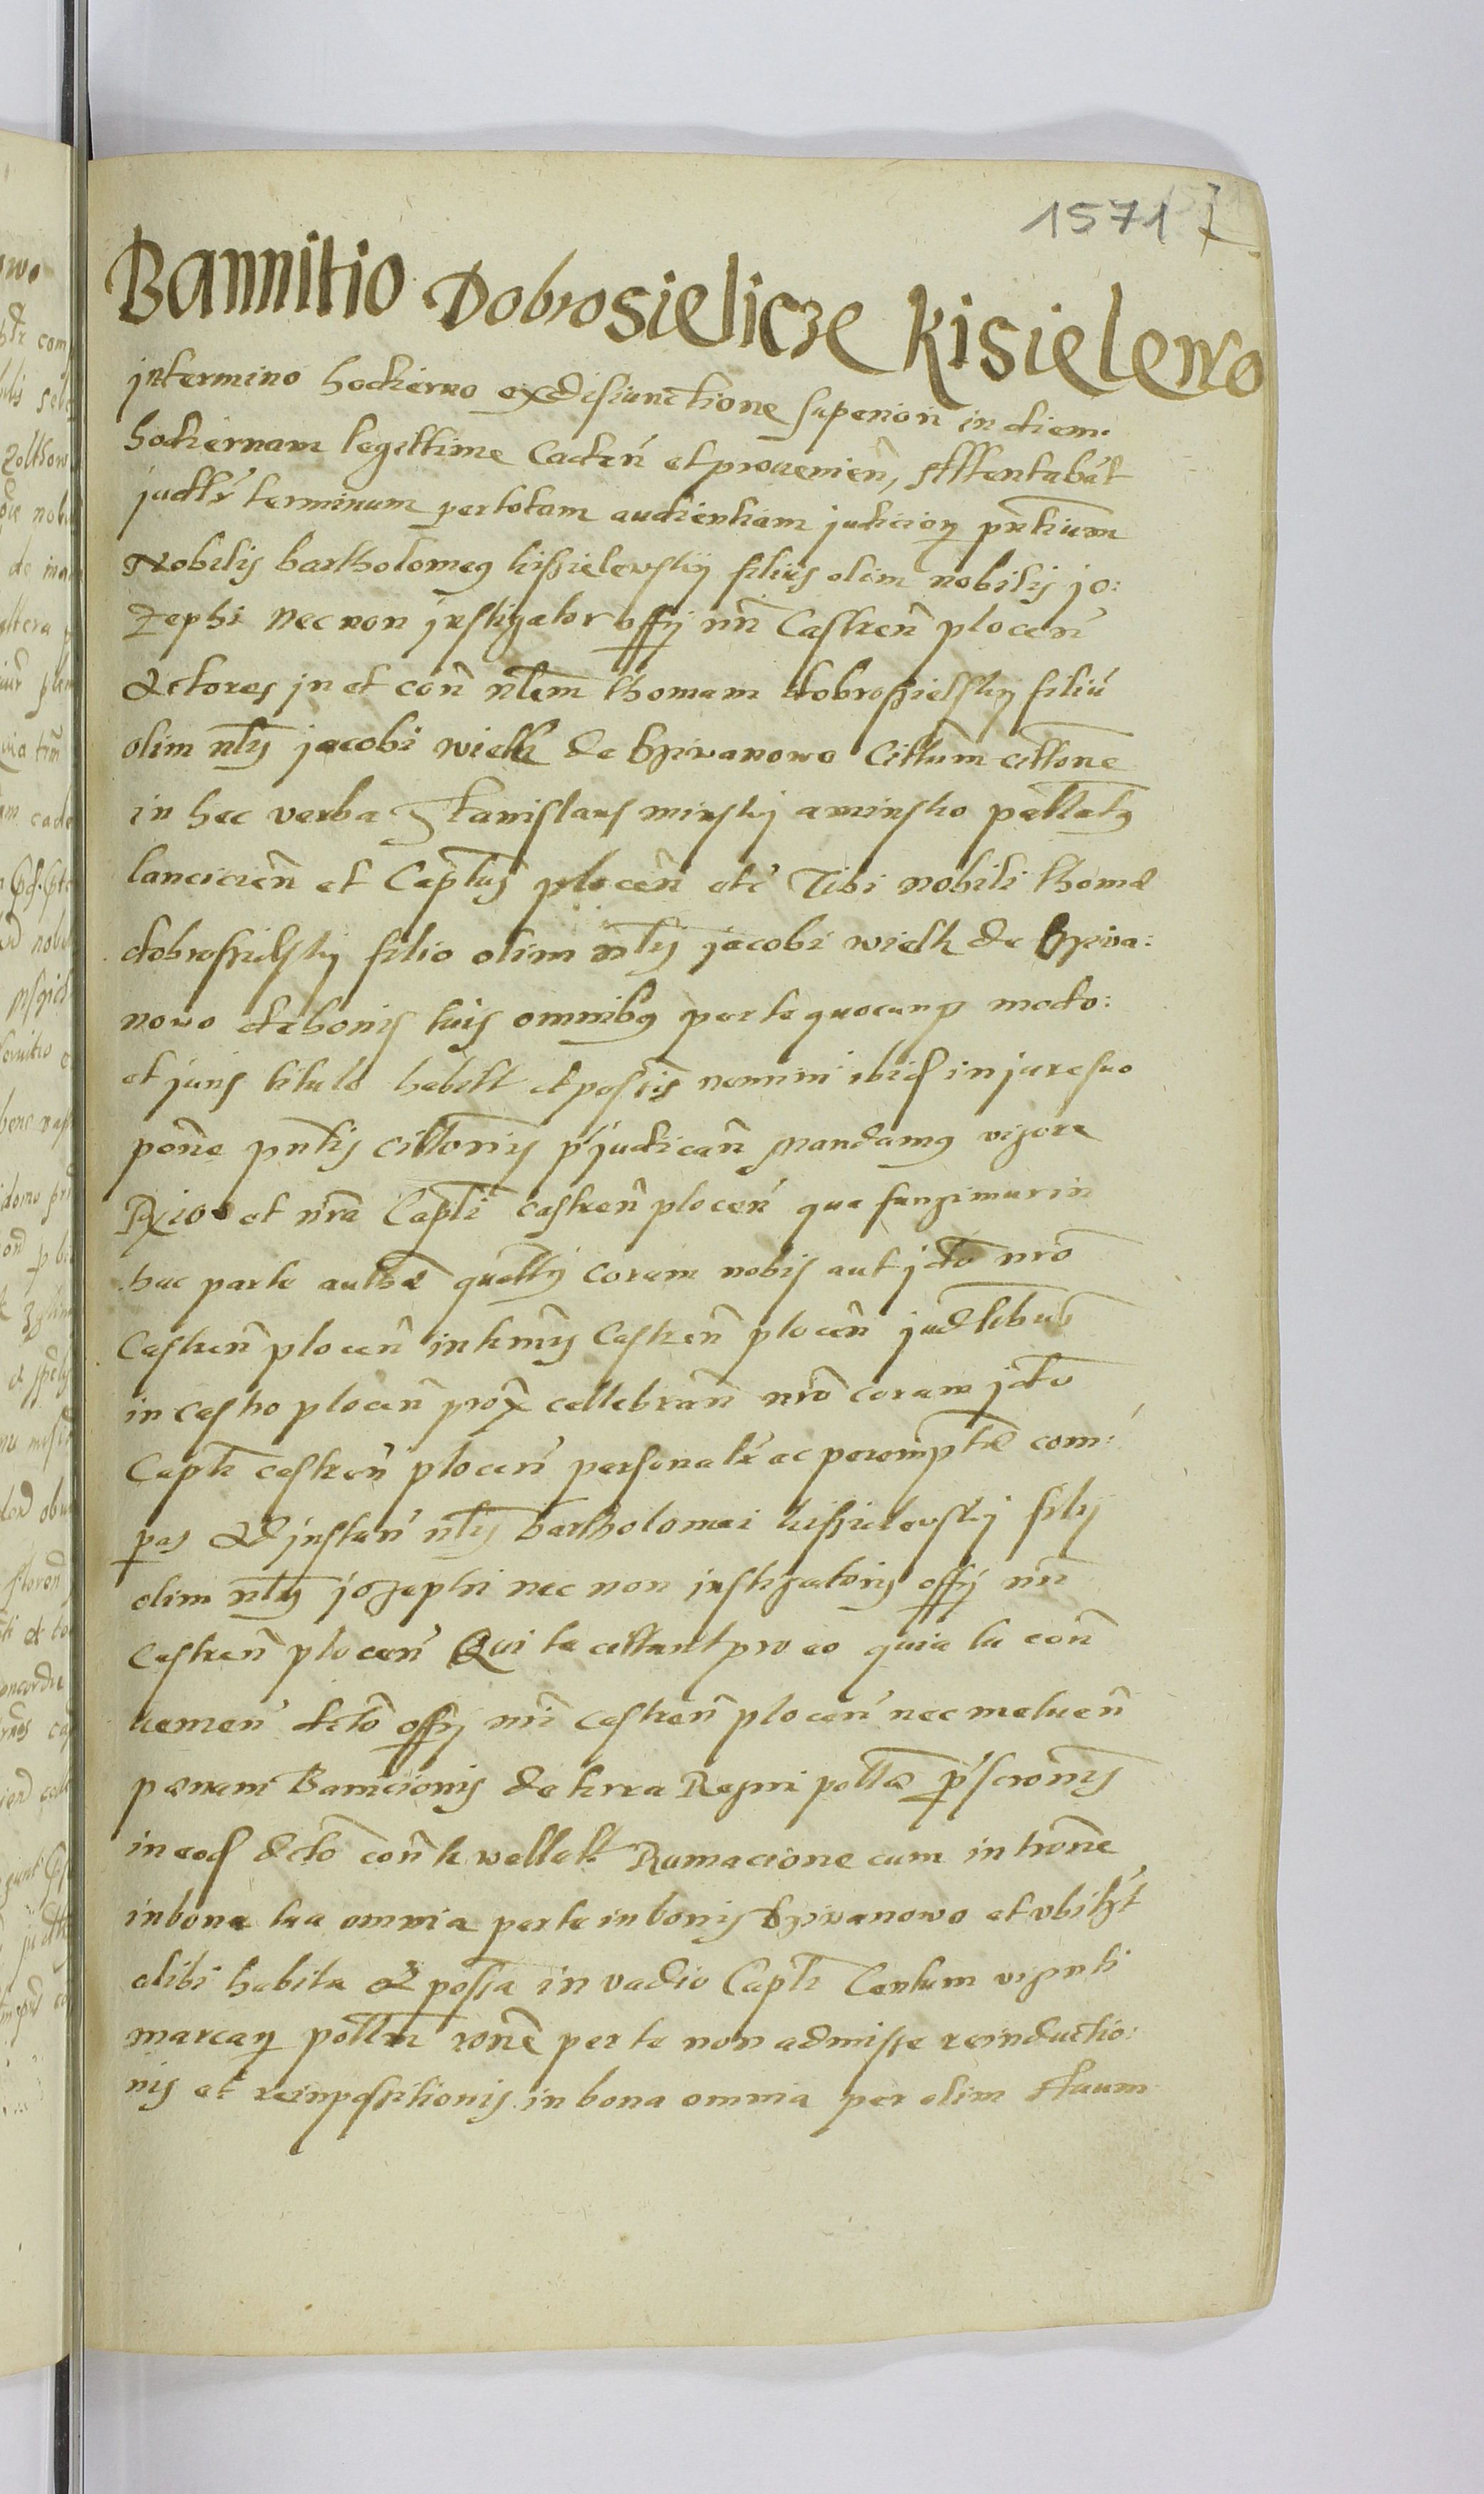 1571 7
Bannitio Dobrosielicze Kisielewo
jntermino hodierno exdisiunctione superiori in diem
hodiernam legittime Caden̄ et prouenien̄, Attentabāt
judlr̄ terminum pertotam audientiam judicioꝝ pn̄tium
Nobilis bartholomeꝯ kissielewskij filius olim nobilis jo:
zephi Nec non jnstigator offij nrī Castren̄ plocen̄
Actores jn et con̄ nlēm thomam dobrossielskij filiū
olim nlīs jacobi wielk de Cziwanowo Cittum cittōne
in hec verba Stanislaus minskij a minsko pallatꝯ
lancicien̄ et Captūs plocen̄ etc̄ Tibi nobili thomæ
dobrossielskij filio olim nlīs jacobi wielk de Cziwa:
nowo de bonis tuis omnibꝯ per te quocunqꝫ modo:
et juris titulo habitt et possīs nemini ibid in jure suo
pōne pn̄tis cittōnis p̄judican̄ Mandamꝯ vigore
Rx̄io et nrā Captī castren̄ plocen̄ qua fungimur in
hac parte autħæ quatt̄s coram nobis aut jdto nrō
Castren̄ plocen̄ in tr̄mīs Castren̄ plocen̄ judtlibus
in castro plocen̄ prox̄ cellebran̄ nrō coram jdto
Captī castren̄ plocen̄ personalr̄ ac peremptīe com:
pas Ad jnstan̄ nlīs bartholomæi kissielewskij filij
olim nlīs jozephi nec non jnstigatoris offij nrī
Castren̄ plocen̄ Qui te cittant pro eo quia tu con̄
uenien̄ dcto offij nrī castren̄ plocen̄ nec metuen̄
pænam Bannicionis de terra Regni pollæ p̄scrōnis
in eod dcto con̄ te wallatt Rumacione cum introne
in bona tua omnia per te in bonis Cziwanowo et vbilzt
alibi habita et possā in vadio Captī Centum viginti
marcaꝝ pollm rōne per te non admisse reinductio:
nis et reinpositionis in bona omnia per olim Auum